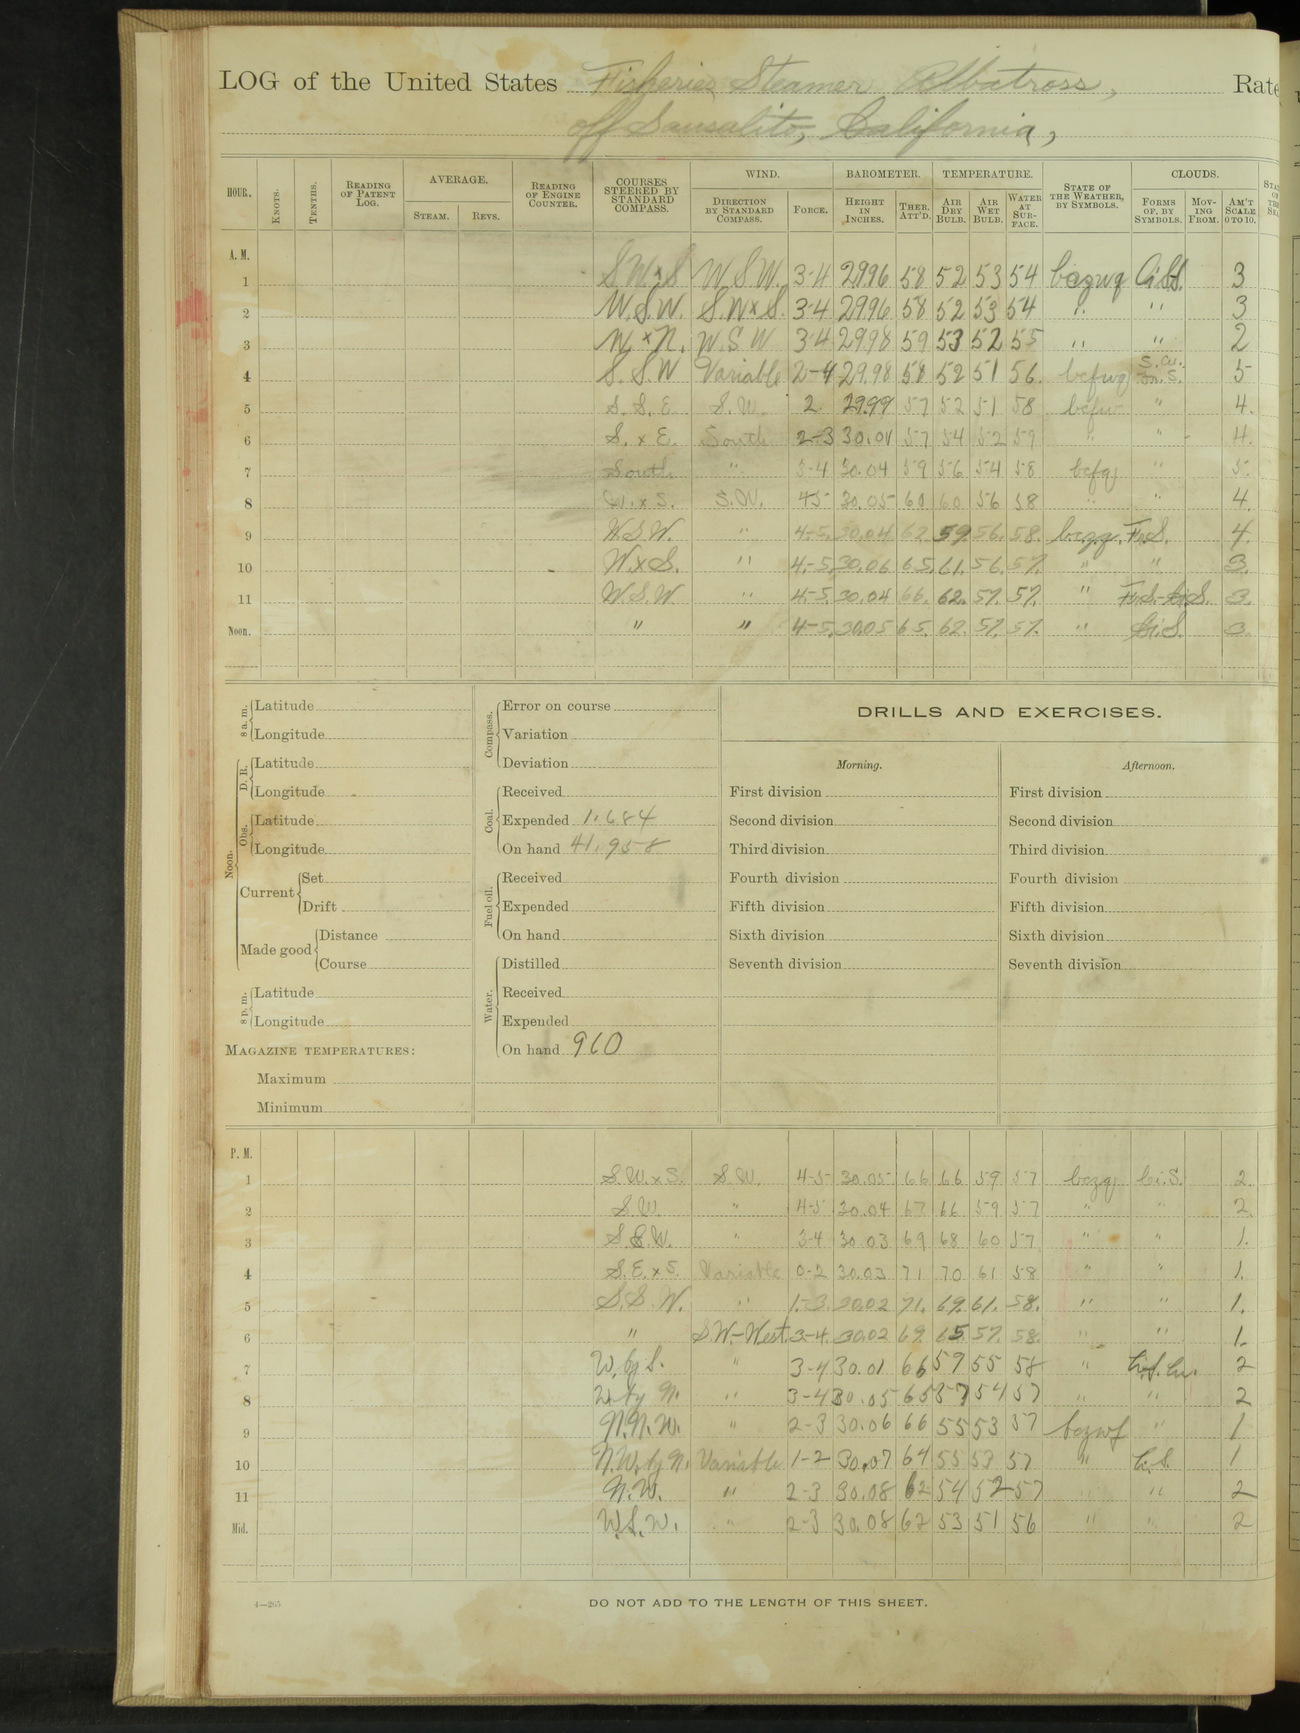 LOG of the United States Fisheries Steamer Albatross, Rate
off Sausalito, California,
HOUR. KNOTS. TENTHS. READING OF PATENT LOG. AVERAGE. STEAM. REVS. READING OF ENGINE COUNTER. COURSES STEERED BY STANDARD COMPASS. WIND. DIRECTION BY STANDARD COMPASS. FORCE. BAROMETER. HEIGHT IN INCHES. THER. ATT'D. TEMPERATURE. AIR DRY BULB. AIR WET BULB. WATER AT SURFACE. STATE OF THE WEATHER, BY SYMBOLS. CLOUDS. FORMS OF, BY SYMBOLS. MOVING FROM. AM'T SCALE 0 TO 10.
A. M.
1 S.W.xS W.S.W. 3-4 29.96 58 52 53 54 bczwq Ci.St. 3
2 W.S.W. S.WxS. 3-4 29.96 58 52 53 54 " " 3
3 W.xN. W.S.W 3-4 29.98 59 53 52 55 " " 2
4 S.S.W Variable 2-4 29.98 58 52 51 56. bcfwq S.Cu. Fr.S. 5
5 S.S.E S.W. 2 29.99 57 52 51 58 bcfw " 4.
6 S.xE. South 2-3 30.01 57 54 52 59 " " 4.
7 South " 3-4 30.04 59 56 54 58 bcfq " 5.
8 W.xS. S.W. 4-5 30.05 60 60 56 58 " " 4.
9 W.S.W. " 4-5. 30.04 62 59. 56. 58. bczq. Fr.S. 4.
10 W.xS. " 4-5. 30.06 65. 61. 56. 57. " " 3.
11 W.S.W " 4-5. 30.04 66. 62. 57. 57. " Fr.S.-Ci.S. 3.
Noon. " " 4-5. 30.05 65. 62. 57. 57. " Ci.S. 3
8 a. m. Latitude
Longitude
Noon. D. R. Latitude
Longitude
Obs. Latitude
Longitude
Current Set
Drift
Made good Distance
Course
8 p. m. Latitude
Longitude
MAGAZINE TEMPERATURES:
Maximum
Minimum
Compass. Error on course
Variation
Deviation
Coal. Received
Expended 1.684
On hand 41.958
Fuel oil. Received
Expended
On hand
Water. Distilled
Received
Expended
On hand 960
DRILLS AND EXERCISES.
Morning. Afternoon.
First division First division
Second division Second division
Third division Third division
Fourth division Fourth division
Fifth division Fifth division
Sixth division Sixth division
Seventh division Seventh division
P. M.
1 S.W.xS. S.W. 4-5 30.05 66 66 59 57 bczq Ci.S. 2.
2 S.W. " 4-5 30.04 67 66 59 57 " " 2.
3 S.S.W. " 3-4 30.03 69 68 60 57 " " 1.
4 S.E.xS. Variable 0-2 30.03 71 70 61 58 " " 1.
5 S.S.W. " 1-3. 30.02 71. 69. 61. 58. " " 1.
6 " S.W.-West. 3-4. 30.02 69. 65. 57. 58. " " 1.
7 W. by S. " 3-4 30.01 66 59 55 58 " Ci.S. Cu. 2
8 W. by N. " 3-4 30.05 65 57 54 57 " " 2
9 N.N.W. " 2-3 30.06 66 55 53 57 bczwf " 1
10 N.W. by N. Variable 1-2 30.07 64 55 53 57 " Ci.S. 1
11 N.W. " 2-3 30.08 62 54 52 57 " " 2
Mid. W.S.W. " 2-3 30.08 62 53 51 56 " " 2
4—265 DO NOT ADD TO THE LENGTH OF THIS SHEET.